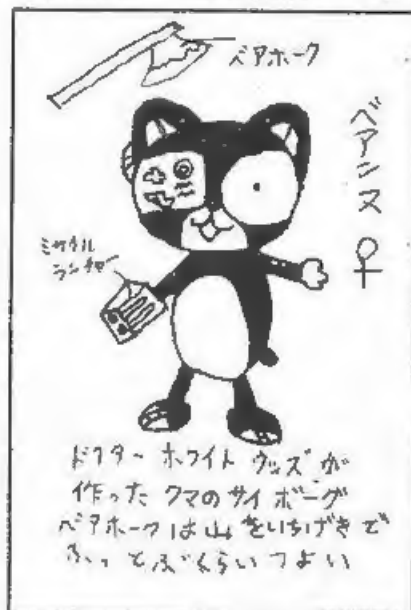 ベアホーク
ベアンヌ♀
ミサイル
ランチャー
ドクター ホワイト ウッズが
作った クマの サイボーグ
ベアホークは 山をいちげきで
ふっとぶくらい つよい